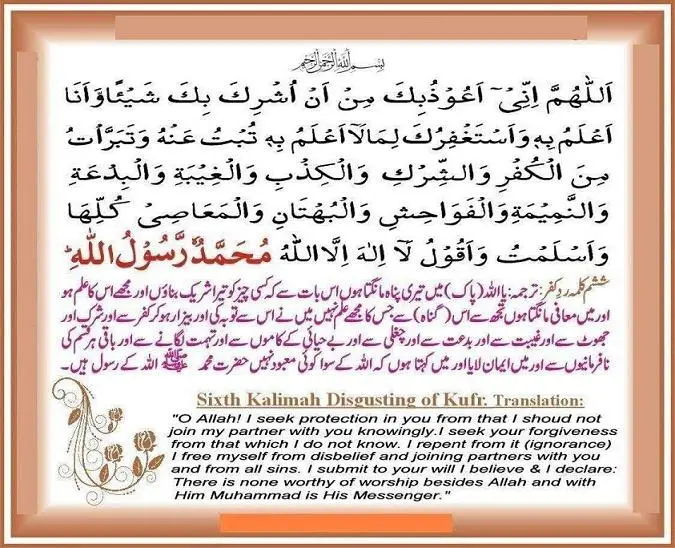 بِسْمِ اللهِ الرَّحْمٰنِ الرَّحِيْمِ
اَللّٰهُمَّ اِنِّیْۤ اَعُوْذُبِكَ مِنْ اَنْ اُشْرِكَ بِكَ شَيْئًا وَّاَنَا
اَعْلَمُ بِهٖ وَاَسْتَغْفِرُكَ لِمَالَاۤ اَعْلَمُ بِهٖ تُبْتُ عَنْهُ وَتَبَرَّأْتُ
مِنَ الْكُفْرِ وَالشِّرْكِ وَالْكِذْبِ وَالْغِيْبَةِ وَالْبِدْعَةِ
وَالنَّمِيْمَةِ وَالْفَوَاحِشِ وَالْبُهْتَانِ وَالْمَعَاصِیْ كُلِّهَا
وَاَسْلَمْتُ وَاَقُوْلُ لَاۤ اِلٰهَ اِلَّا اللهُ مُحَمَّدٌ رَّسُوْلُ اللهِؕ
ششم کلمہ ردِ کفر: ترجمہ: یا اللہ (پاک) میں تیری پناہ مانگتا ہوں اس بات سے کہ کسی چیز کو تیرا شریک بناؤں اور مجھے اس کا علم ہو
اور میں معافی مانگتا ہوں تجھ سے اس (گناہ) سے جس کا مجھے علم نہیں میں نے اس سے توبہ کی اور بیزار ہو کر کفر سے اور شرک اور
جھوٹ سے اور غیبت سے اور بدعت سے اور چغلی سے اور بے حیائی کے کاموں سے اور تہمت لگانے سے اور باقی ہر قسم کی
نافرمانیوں سے اور میں ایمان لایا اور میں کہتا ہوں کہ اللہ کے سوا کوئی معبود نہیں حضرت محمد ﷺ اللہ کے رسول ہیں۔
Sixth Kalimah Disgusting of Kufr. Translation:
"O Allah! I seek protection in you from that I shoud not
join my partner with you knowingly.I seek your forgiveness
from that which I do not know. I repent from it (ignorance)
I free myself from disbelief and joining partners with you
and from all sins. I submit to your will I believe & I declare:
There is none worthy of worship besides Allah and with
Him Muhammad is His Messenger."